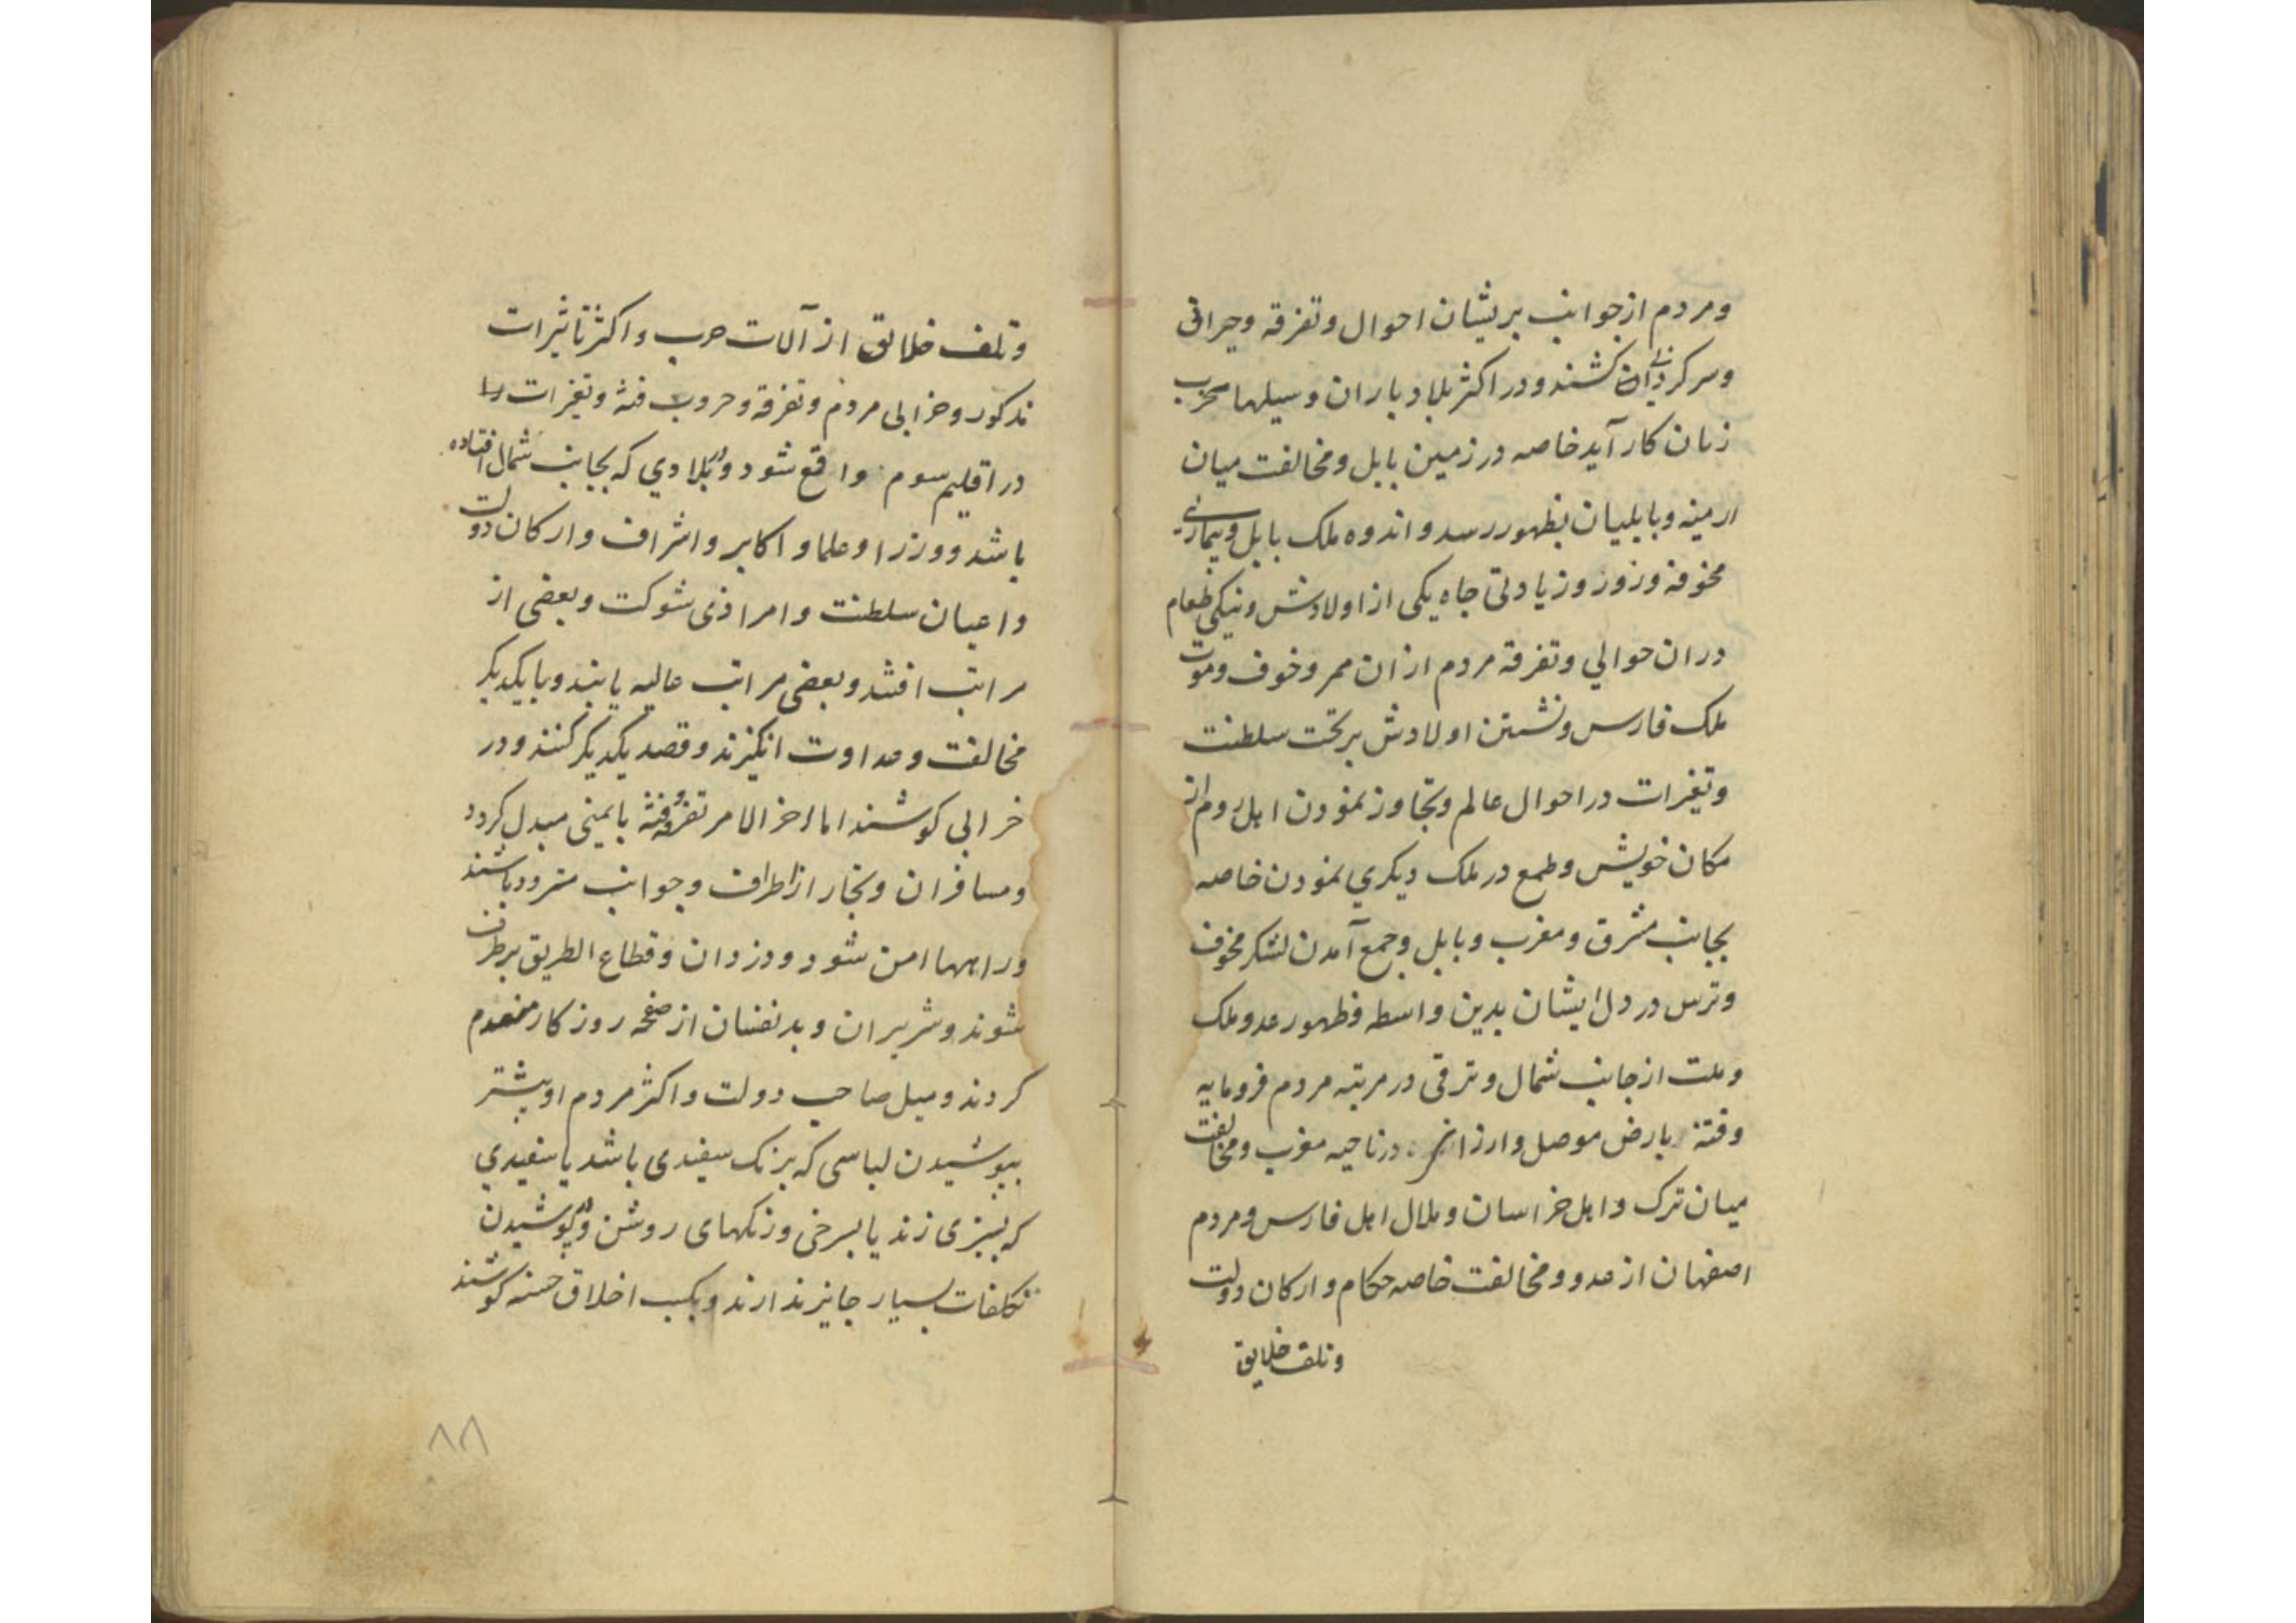 ومردم از جوانب پریشان احوال و تفرقه و حیرانی
وسرکردانی ان کشند و در اکثر بلاد باران و سیلهاء مخرب
زیان کار آید خاصه در زمین بابل و مخالفت میان
ارمنیه و بابلیان بظهور رسد و اندوه ملک بابل و بیماری
مخوفه وزور وزیادتی جاه یکی از اولادش ونیکی طعام
دران حوالی وتفرقه مردم ازان ممر وخوف وموت
ملک فارس ونشستن اولادش بر تخت سلطنت
وتغیرات در احوال عالم وتجاوز نمودن اهل روم از
مکان خویش وطمع در ملک دیکری نمودن خاصه
بجانب مشرق و مغرب و بابل وجمع آمدن لشکر مخوف
وترس در دل ایشان بدین واسطه وظهور عدو ملک
وملت از جانب شمال وترقی در مرتبه مردم فرومایه
وفتنه بارض موصل وارزانی در ناحیه مغرب ومخالفت
میان ترک واهل خراسان وملال اهل فارس ومردم
اصفهان از عدو ومخالفت خاصه حکام وارکان دولت
وتلف خلایق
وتلف خلایق از آلات حرب واکثر تاثیرات
مذکور وخرابی مردم وتفرقه وحروب فتنه وتغیرات
در اقلیم سوم واقع شود ودر بلادی که بجانب شمال افتاده
باشد ووزرا وعلما و اکابر واشراف وارکان دولت
واعیان سلطنت وامرا ذی شوکت وبعضی از
مراتب افتند وبعضی مراتب عالیه یابند وبا یکدیکر
مخالفت وعداوت انکیزند وقصد یکدیکر کنند ودر
خرابی کوشند اما اخر الامر تفرقه وفتنه بایمنی مبدل کردد
ومسافران وتجار از اطراف وجوانب متردد باشند
وراهها امن شود ودزدان وقطاع الطریق برطرف
شوند وشریران وبدنفسان از صفحه روزکار منعدم
کردند ومیل صاحب دولت واکثر مردم او بیشتر
بپوشیدن لباسی که برنک سفیدی باشد یا سفیدی
که بسبزی زند یا بسرخی ورنکهای روشن ودر پوشیدن
تکلفات بسیار جایز ندارند وبکسب اخلاق حسنه کوشند
۸۸